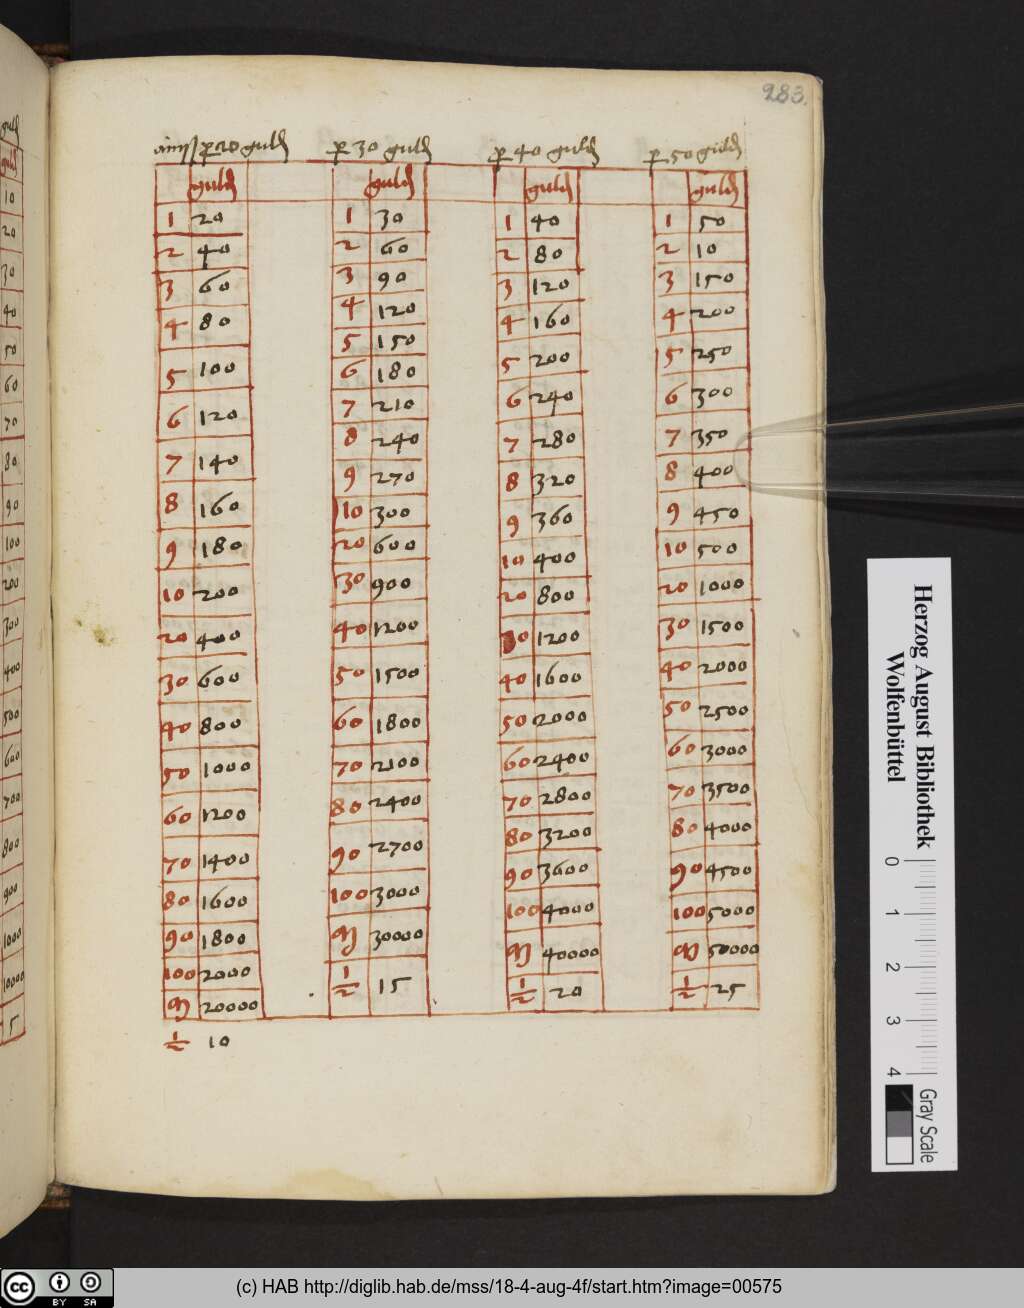 283.
per 20 guld per 30 guld per 40 guld per 50 guld
guld guld guld guld
1 20 1 30 1 40 1 50
2 40 2 60 2 80 2 10
3 60 3 90 3 120 3 150
4 80 4 120 4 160 4 200
5 100 5 150 5 200 5 250
6 120 6 180 6 240 6 300
7 140 7 210 7 280 7 350
8 160 8 240 8 320 8 400
9 180 9 270 9 360 9 450
10 200 10 300 10 400 10 500
20 400 20 600 20 800 20 1000
30 600 30 900 30 1200 30 1500
40 800 40 1200 40 1600 40 2000
50 1000 50 1500 50 2000 50 2500
60 1200 60 1800 60 2400 60 3000
70 1400 70 2100 70 2800 70 3500
80 1600 80 2400 80 3200 80 4000
90 1800 90 2700 90 3600 90 4500
100 2000 100 3000 100 4000 100 5000
20000 30000 40000 50000
1/2 10 1/2 15 1/2 20 1/2 25
guld
guld
10
20
30
40
50
60
70
80
90
100
200
300
400
500
600
700
800
900
1000
10000
5
Herzog August Bibliothek
Wolfenbüttel
0 1 2 3 4
Gray Scale
cc BY SA
(c) HAB http://diglib.hab.de/mss/18-4-aug-4f/start.htm?image=00575